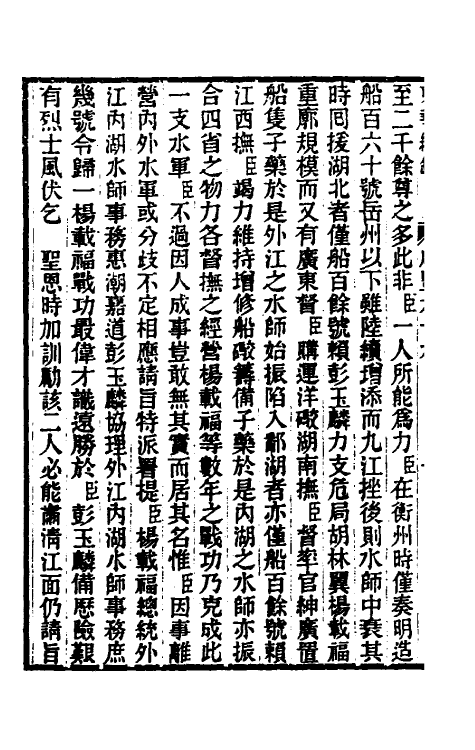 至二千餘尊之多此非臣一人所能爲力臣在衡州時僅奏明造
船百六十號岳州以下雖陸續增添而九江挫後則水師中衰其
時囘援湖北者僅船百餘號賴彭玉麟力支危局胡林翼楊載福
重廓規模而又有廣東督臣購運洋礮湖南撫臣督率官紳廣置
船隻子藥於是外江之水師始振陷入鄱湖者亦僅船百餘號賴
江西撫臣竭力維持增修船礮籌備子藥於是內湖之水師亦振
合四省之物力各督撫之經營楊載福等數年之戰功乃克成此
一支水軍臣不過因人成事豈敢無其實而居其名惟臣因事離
營內外水軍或分歧不定相應請旨特派署提臣楊載福總統外
江內湖水師事務惠潮嘉道彭玉麟協理外江內湖水師事務庶
幾號令歸一楊載福戰功最偉才識遠勝於臣彭玉麟備歷險艱
有烈士風伏乞　聖恩時加訓勵該二人必能肅清江面仍請旨